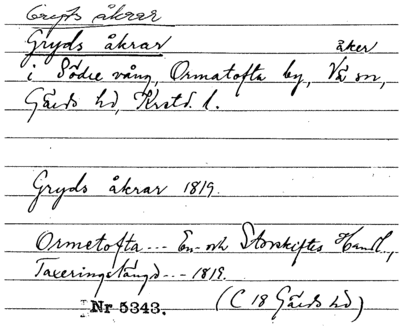 Gryds åkrar
Gryds åkrar åker
i Södre vång, Ormatofta by, Vä sn,
Gärds hd, Krstd. l.
Gryds åkrar 1819.
Ormetofta --- En- och Storskiftes Handl.,
Taxeringslängd --- 1819.
Nr 5343. (C 18 Gärds hd)